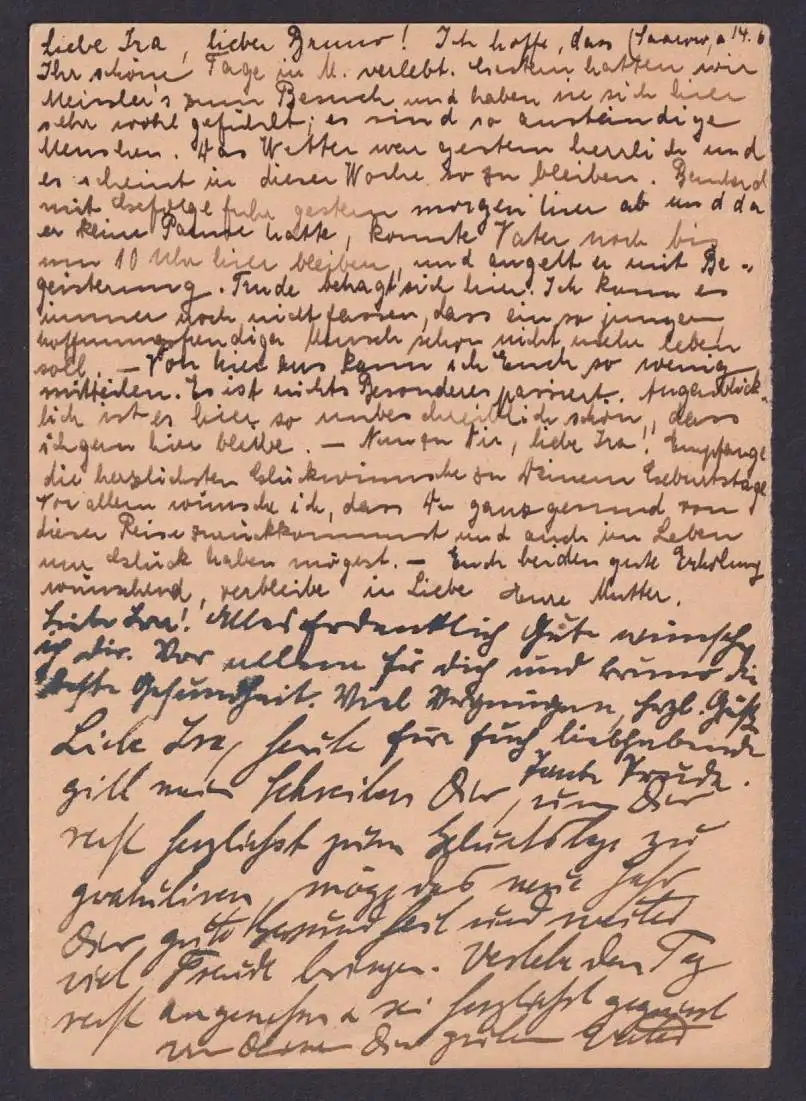 Liebe Ira, lieber Bruno! Ich hoffe, dass (Saarow, a 14. 6
Ihr schöne Tage in M. verlebt. Gestern hatten wir
Meissler's zum Besuch und haben sie sich hier
sehr wohl gefühlt; es sind so anständige
Menschen. Das Wetter war gestern herrlich und
es scheint in dieser Woche so zu bleiben. Bernhard
mit Gefolge fuhr gestern morgen hier ab und da
er keine Panne hatte, konnte Vater noch bis
um 10 Uhr hier bleiben, und angelt er mit Be-
geisterung. Trude behagt sich hier. Ich kann es
immer noch nicht fassen, dass ein so junger,
hoffnungsfreudiger Mensch schon nicht mehr leben
soll. – Von hier aus kann ich Euch so wenig
mitteilen. Es ist nichts Besonderes passiert. Augenblick-
lich ist es hier so unbeschreiblich schön, dass
ich gern hier bleibe. – Nun zu Dir, liebe Ira! Empfange
die herzlichsten Glückwünsche zu Deinem Geburtstage
Vor allem wünsche ich, dass Du ganz gesund von
dieser Reise zurückkommst und auch im Leben
nur Glück haben mögest. – Euch beiden gute Erholung
wünschend, verbleibe in Liebe Eure Mutter.
Liebe Ira! Alles erdenklich Gute wünsche
ich dir. Vor allem für dich und Bruno die
beste Gesundheit. Viel Vergnügen, herzl. Grüße
Eure Euch liebhabende
Tante Trude.
Liebe Ira, heute
gilt mein Schreiben Dir, um Dir
recht herzlichst zum Geburtstage zu
gratulieren, möge das neue Jahr
Dir gute Gesundheit und weiter
viel Freude bringen. Verlebe den Tag
recht angenehm u sei herzlichst gegrüsst
von Deinem Dir guten Vater